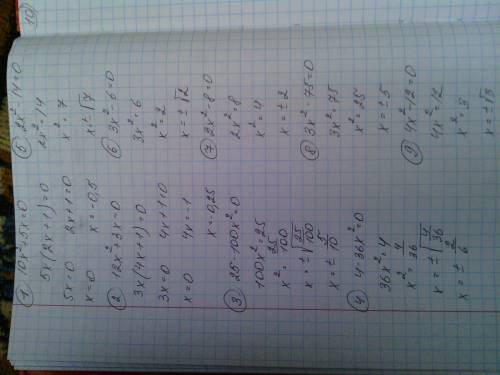 10
① 10x²+5x=0
5x(2x+1)=0
5x=0 2x+1=0
x=0 x=-0,5
② 12x²+3x=0
3x(4x+1)=0
3x=0 4x+1=0
x=0 4x=-1
x=0,25
③ 25-100x²=0
100x²=25
x²=25/100
x=±√25/100
x=±5/10
④ 4-36x²=0
36x²=4
x²=4/36
x=±√4/36
x=±2/6
⑤ 2x²-14=0
2x²=14
x²=7
x±√7
⑥ 3x²-6=0
3x²=6
x²=2
x=±√2
⑦ 2x²-8=0
2x²=8
x²=4
x=±2
⑧ 3x²-75=0
3x²=75
x²=25
x=±5
⑨ 4x²-12=0
4x²=12
x²=3
x=±√3